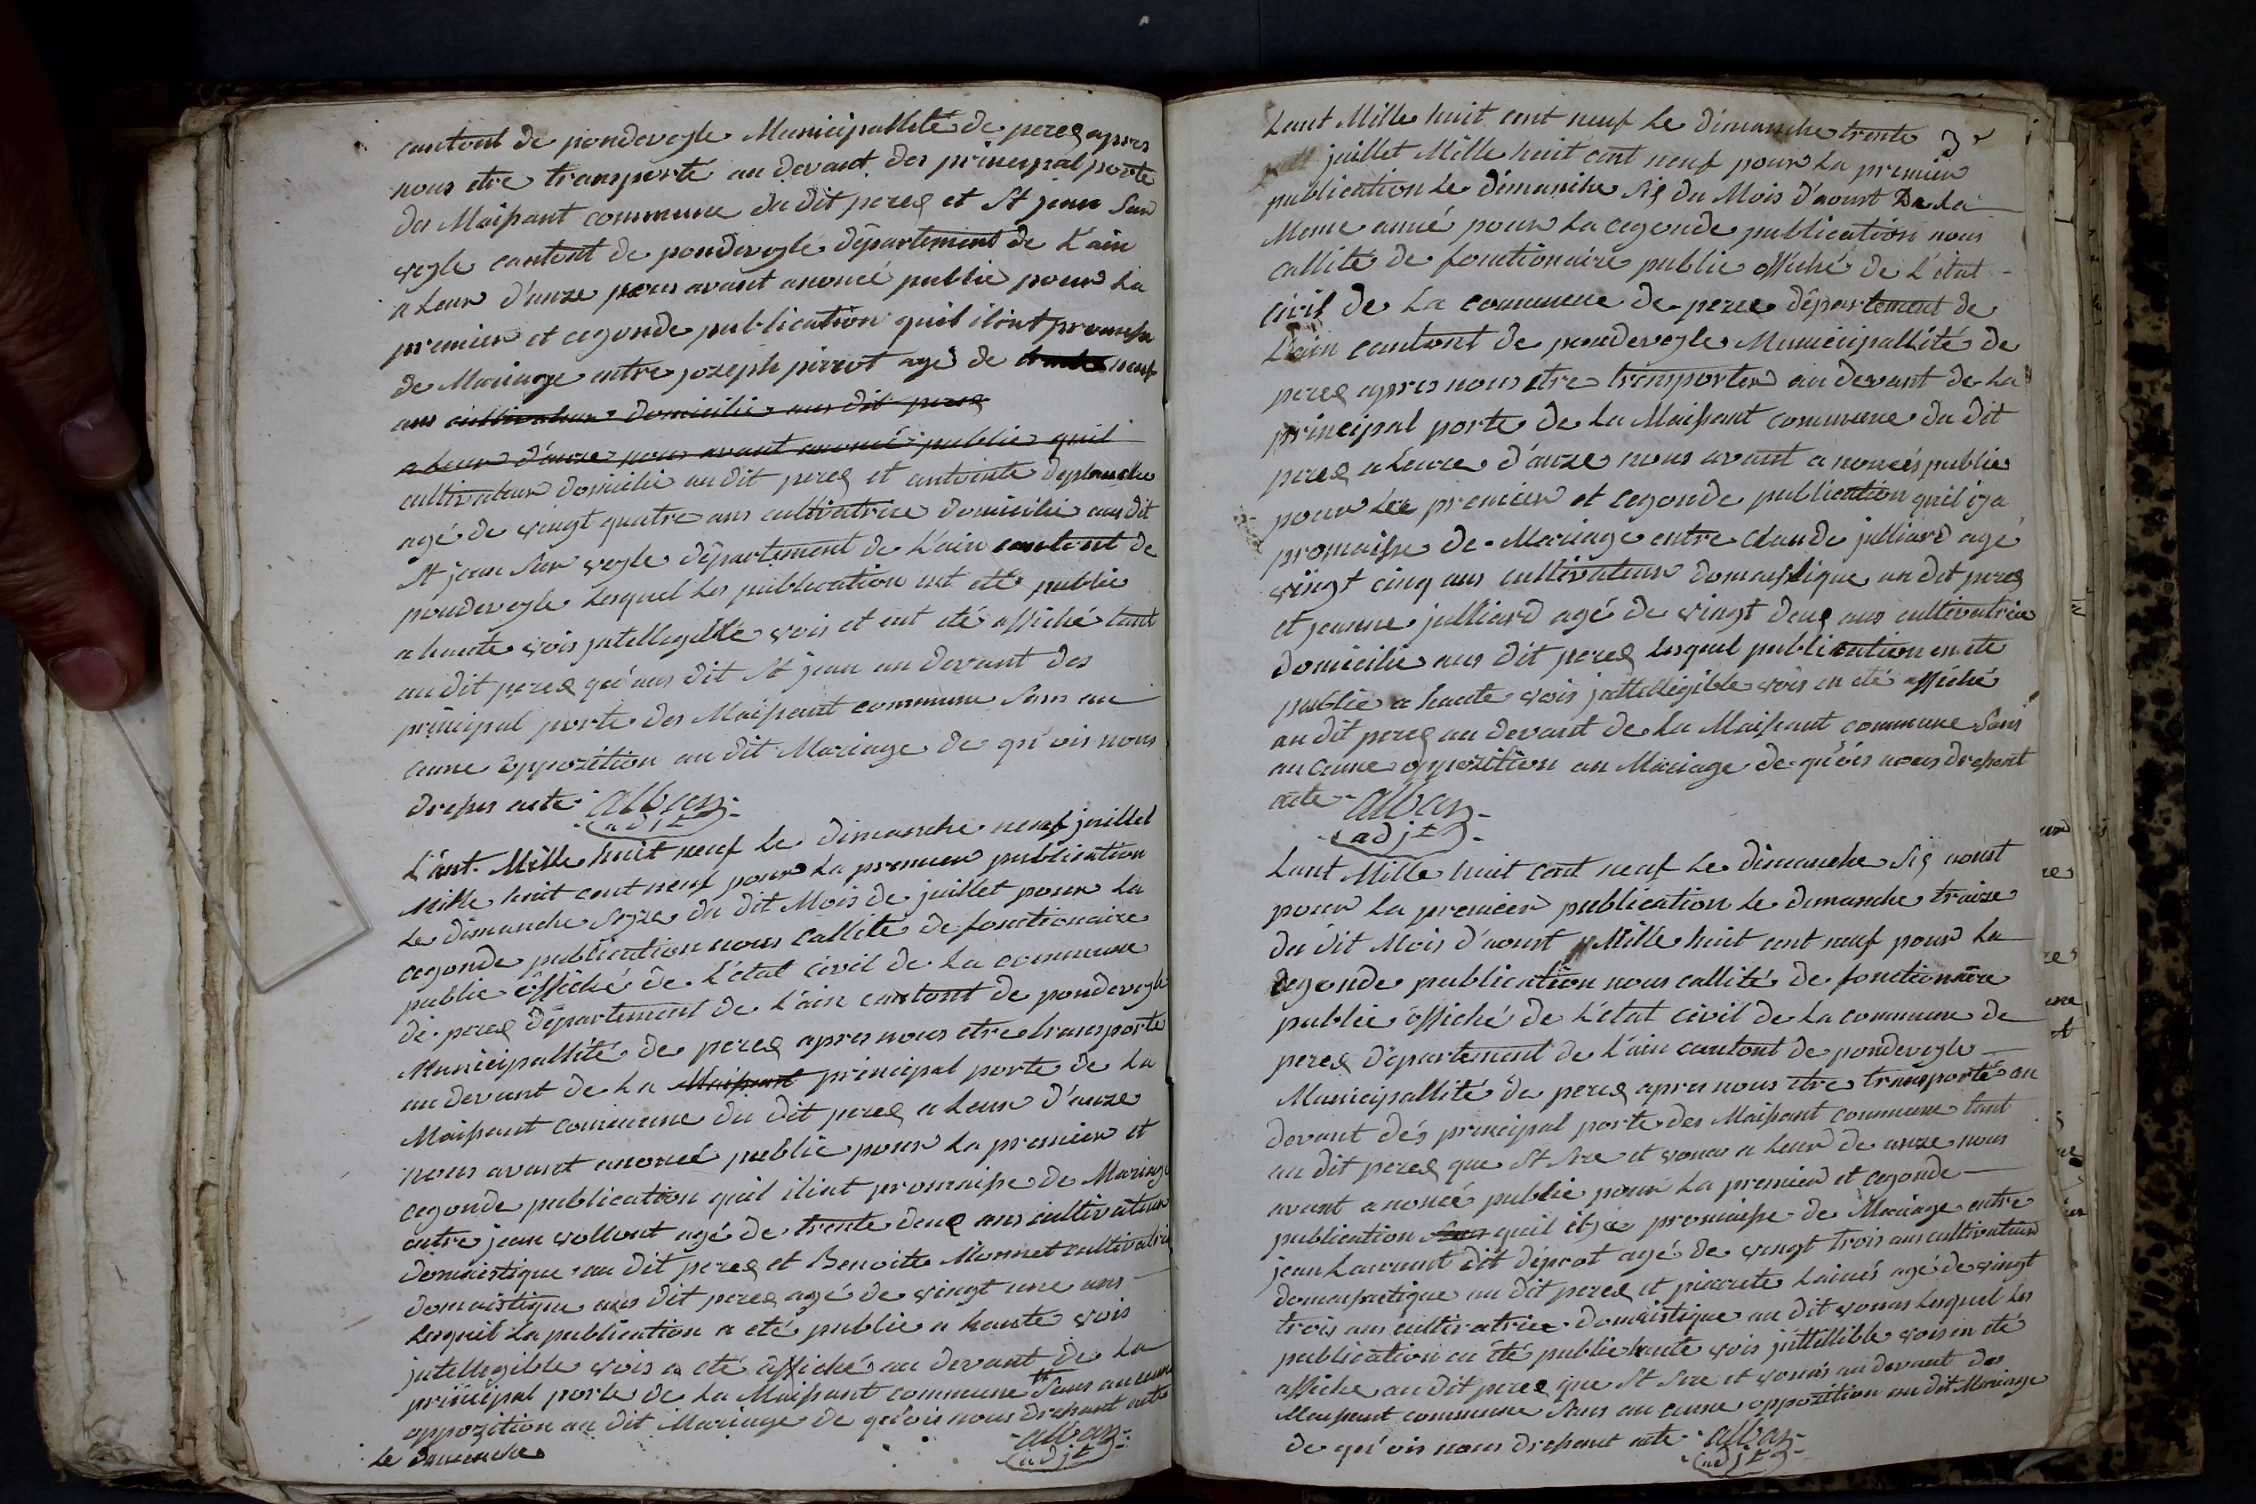 cantont de pondevegle Municipallité de perex apres
nous etre transporté au devant des principal porte
des Maisont commune du dit perex et St jean Sur
vegle cantont de pondevegle département de L'ain
a Leur d'unze nous avant anoncé public pour La
premier et cegonde publication quil ilint promaisse
de Mariage entre jozeph pirrot agé de neuf
ans cultivateur domicilie aus dit perex
a Leur d'unze nous avant anoncé public quil
cultivateur domicilie au dit perex et antointe deplanche
agé de vingt quatre ans cultivatrice domicilie aus dit
St jean Sur vegle département de L'ain cantont de
pondevegle Lesquel Les publication ont eté public
a haute vois jntellegible vois et ont eté affiché tant
au dit perex qu'aus dit St jean au devant des
principal porte des Maisont commune Sans au
cune oppozition au dit Mariage de qu'ois nous
dresses acte alban
adjt
L'ant Mille huit neuf le dimanche neuf juillet
Mille huit cent neuf pour La premier publication
Le dimanche Seze du dit Mois de juillet pour La
cegonde publication nous callité de fonctionaire
public officié de L'état civil de La commune
de perex département de L'ain cantont de pondevegle
Municipallité de perex apres nous etre transporté
au devant de La Maisont principal porte de La
Maisont commune du dit perex a Leur d'unze
nous avant anoncé public pour La premier et
cegonde publication quil ilint promaisse de Mariage
entre jean vollont agé de trente deux ans cultivateur
domaistique au dit perex et Benoitte Monnet cultivatrice
domaistique aus dit perex agé de vingt une ans
Lesquel La publication a eté public a haute vois
jntellegible vois a eté affiché au devant de La
principal porte de La Maisont commune Sans aucune
oppozition au dit Mariage de qu'ois nous dressont acte
alban
adjt
Le dimanche
Lant Mille huit cent neuf Le dimanche trente
juillet Mille huit cent neuf pour La premier
publication Le dimanche Six du Mois d'aoust De La
Meme anné pour La cegonde publication nous
callité de fonctionaire public offiché de L'état
civil de La commune de perex département de
L'ain cantont de pondevegle Municipallité de
perex apres nous etre transporter au devant de La
principal porte de La Maisont commune du dit
perex a Leure d'unze nous avant anoncés public
pour Les premier et cegonde publication quil iya
promaisse de Mariage entre Claude julliard agé
vingt cinq ans cultivateur domaistique au dit perex
et jeanne julliard agé de vingt deux ans cultivatrice
domicilie aus dit perex Lesquel publication en eté
public a haute vois jnttellegible vois en eté affiché
au dit perex au devant de La Maisont commune Sans
au cune oppozition au Mariage de qu'ois nous dressont
acte alban
adjt
Lant Mille huit cent neuf Le dimanche Six aoust
pour La premier publication Le dimanche traize
du dit Mois d'aoust Mille huit cent neuf pour La
cegonde publication nous callité de fonctionaire
public offiché de L'état civil de La commune de
perex département de L'ain cantont de pondevegle
Municipallité de perex apres nous etre transporté au
devant dés principal porte des Maisont commune tant
au dit perex que St Sre et vonas a Leur de unze nous
avant anoncé public pour La premier et cegonde
publication quil il ya promaisse de Mariage entre
jean Laurant dit déprot agé de vingt trois ans cultivateur
domaistique au dit perex et piarrete Lainés agé de vingt
trois ans cultivatrice domaistique au dit vonas Lesquel Les
publication en été public haute vois jnttellible vois en eté
affiche au dit perex que St Sre et vonas au devant des
Maisont commune Sans au cune oppozition au dit Mariage
de qu'ois nous dressont acte alban
adjt